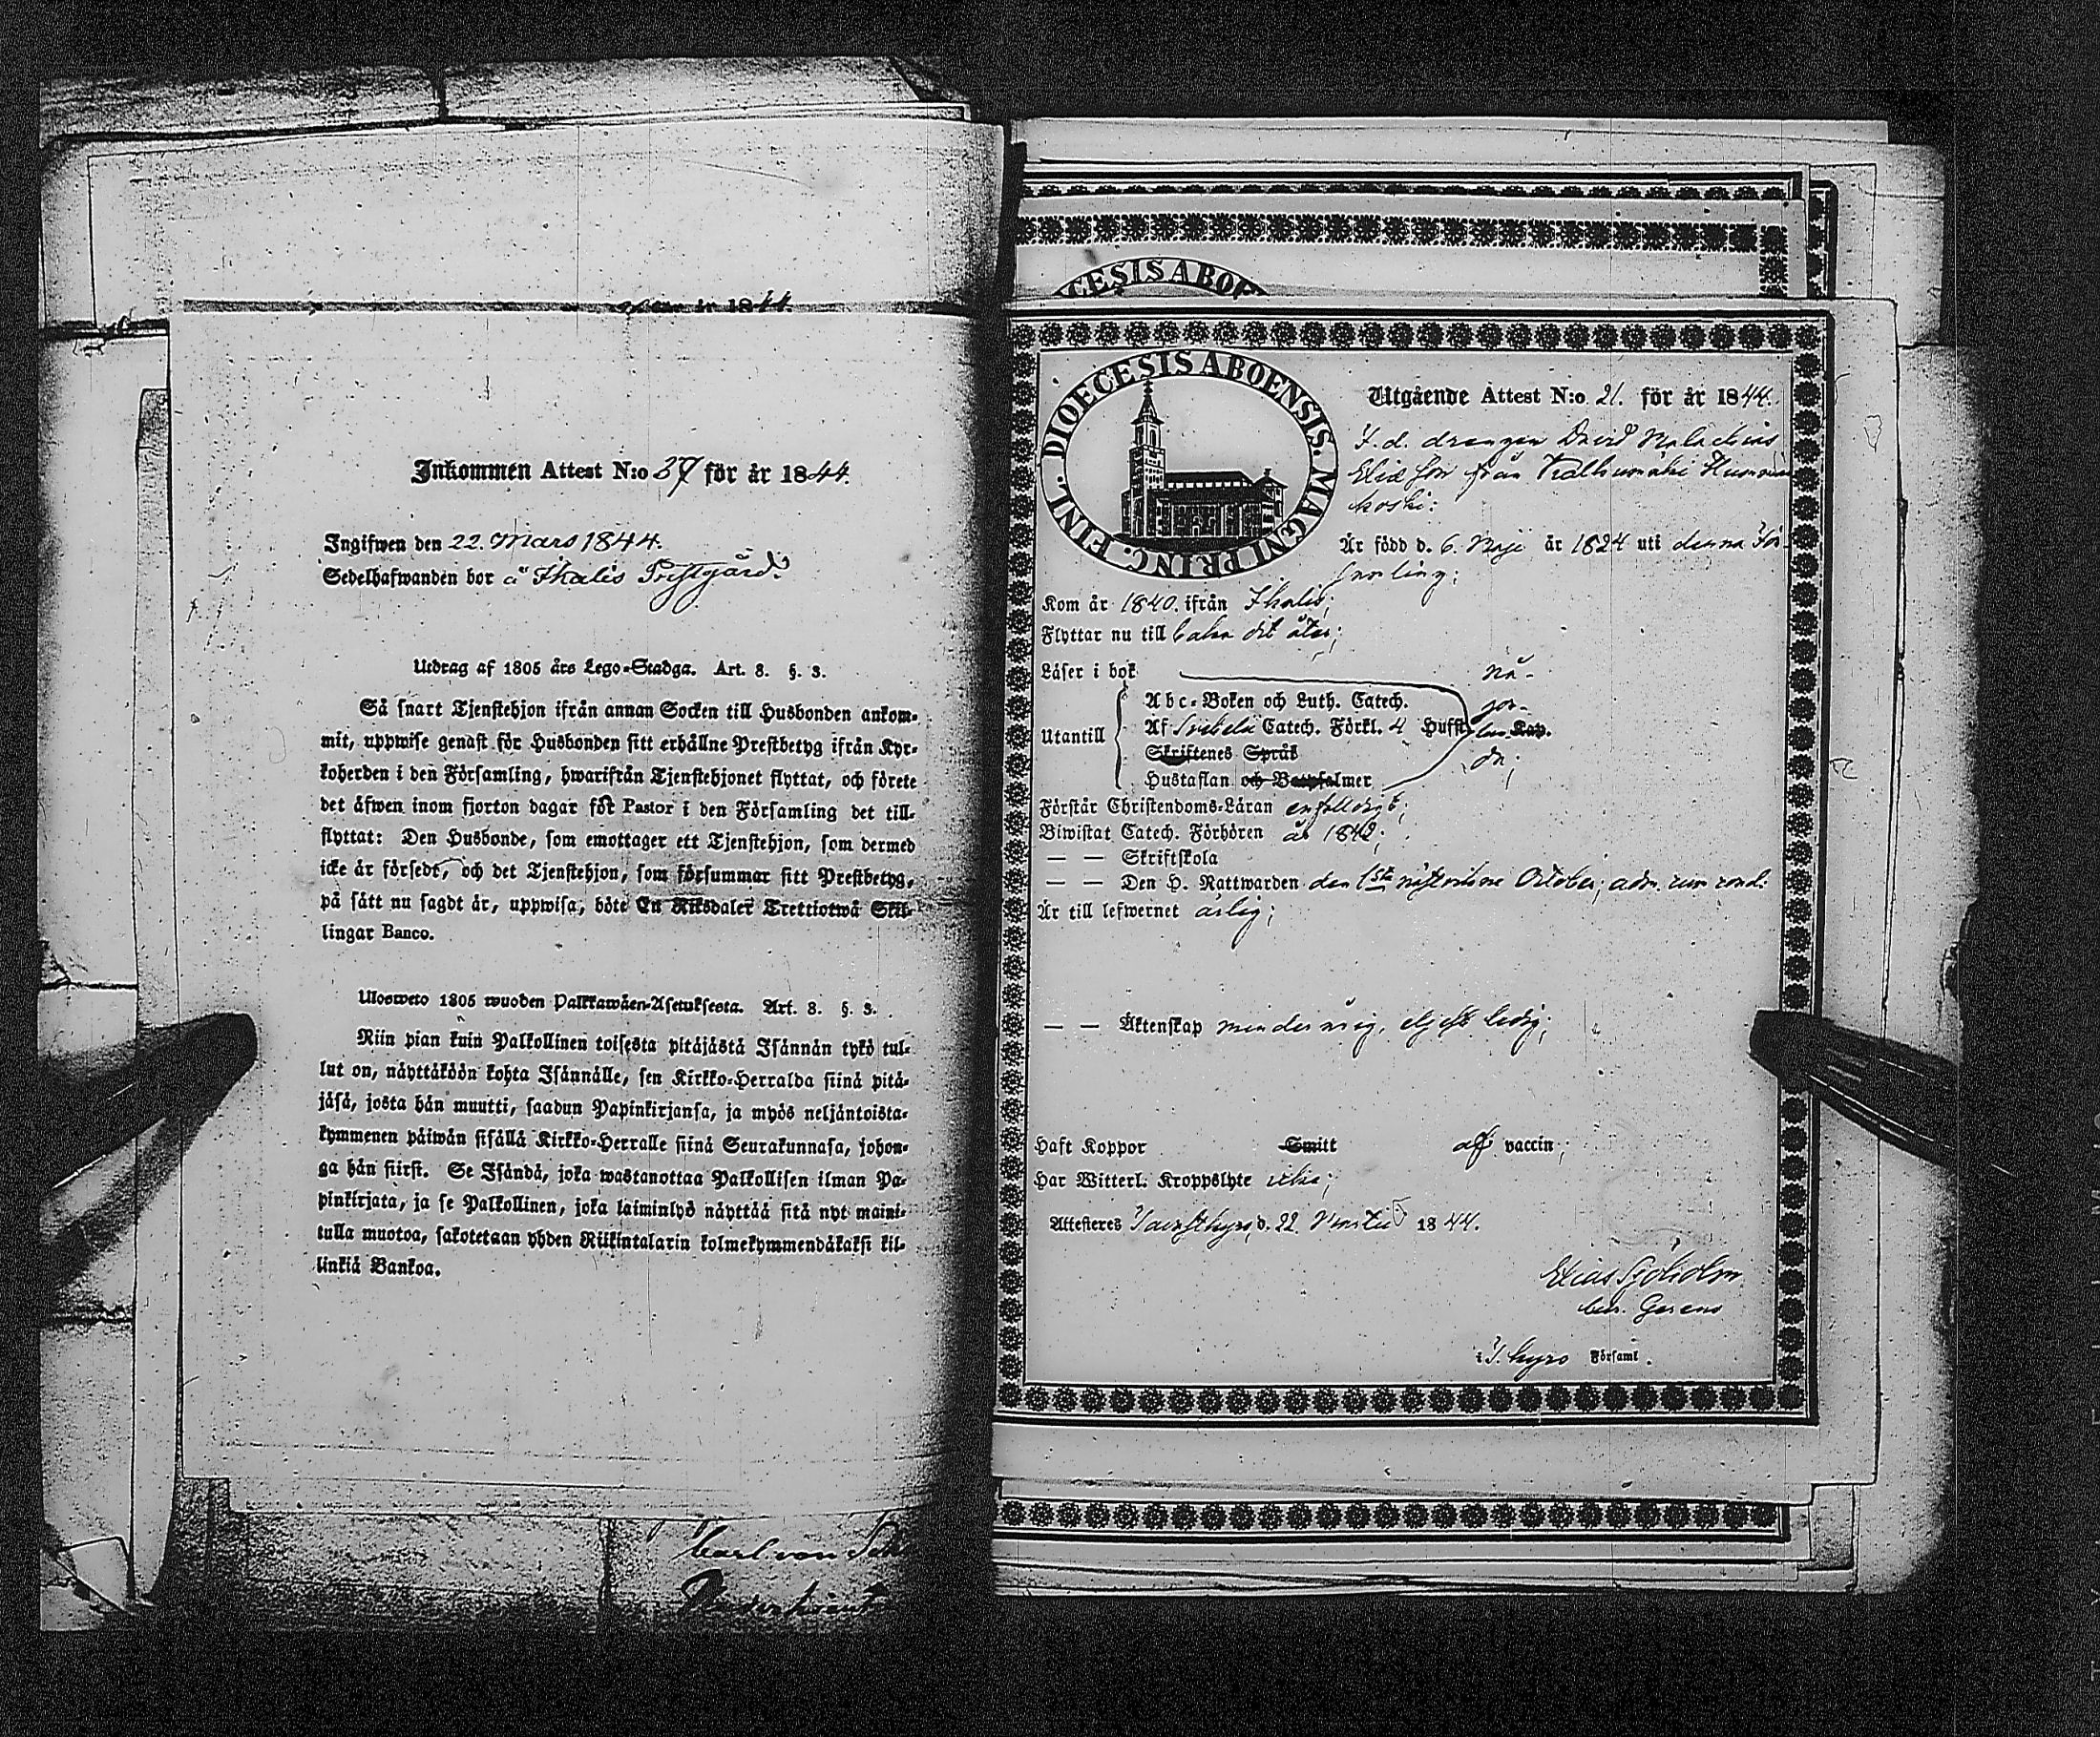 år 1844.
Inkommen Attest N:o 37 för år 1844.
Ingifwen den 22. Mars 1844.
Sedelhafwanden bor å Ikalis Prestgård.
Utdrag af 1805 års Lego-Stadga. Art. 8. §. 3.
Så snart Tjenstehjon ifrån annan Socken till Husbonden ankom-
mit, uppwise genast för Husbonden sitt erhållne Prestbetyg ifrån Kyr-
koherden i den Församling, hwarifrån Tjenstehjonet flyttat, och förete
det äfwen inom fjorton dagar för Pastor i den Församling det till-
flyttat: Den Husbonde, som emottager ett Tjenstehjon, som dermed
icke är försedt, och det Tjenstehjon, som försummar sitt Prestbetyg,
på sätt nu sagdt är, uppwisa, böte En Riksdaler Trettiotwå Skil-
lingar Banco.
Ulosweto 1805 wuoden Palkkawäen-Asetuksesta. Art. 8. §. 3.
Niin pian kuin Palkollinen toisesta pitäjästä Isännän tykö tul-
lut on, näyttäköön kohta Isännälle, sen Kirkko-Herralda siinä pitä-
jäsä, josta hän muutti, saadun Papinkirjansa, ja myös neljäntoista-
kymmenen päiwän sisällä Kirkko-Herralle siinä Seurakunnasa, johon-
ga hän siirst. Se Isändä, joka wastanottaa Palkollisen ilman Pa-
pinkirjata, ja se Palkollinen, joka laiminlyö näyttää sitä nyt maini-
tulla muotoa, sakotetaan yhden Riikintalarin kolmekymmendäkaksi kil-
linkiä Bankoa.
Carl von
CESIS ABOE
DIOECESIS ABOENSIS. MAGNI PRINC. FINL.
Utgående Attest N:o 21. för år 1844.
F. d. drengen David Malachias
Elias son från
koski:
Är född d. 6. Maji år 1824 uti denna För-
samling;
Kom år 1840. ifrån Ikalis;
Flyttar nu till baka dit åter;
Läser i bok nå-
Utantill
Abc-Boken och Luth. Catech. jor-
Af Svebelii Catech. Förkl. 4 Hufst. Kap.
Skriftenes Språk
Hustaflan och Botpsalmer
Förstår Christendoms-Läran enfalldigt;
Biwistat Catech. Förhören år 1842;
— — Skriftskola
— — Den H. Nattwarden den 1ste October; adm. cum cond.
Är till lefwernet ärlig;
— — Äktenskap minderårig, eljest ledig;
Haft Koppor Smitt af vaccin;
Har Witterl. Kroppslyte icke;
Attesteres Tavastkyro, d. 22 1844.
Elias Sjöholm
i T. kyro Församl.